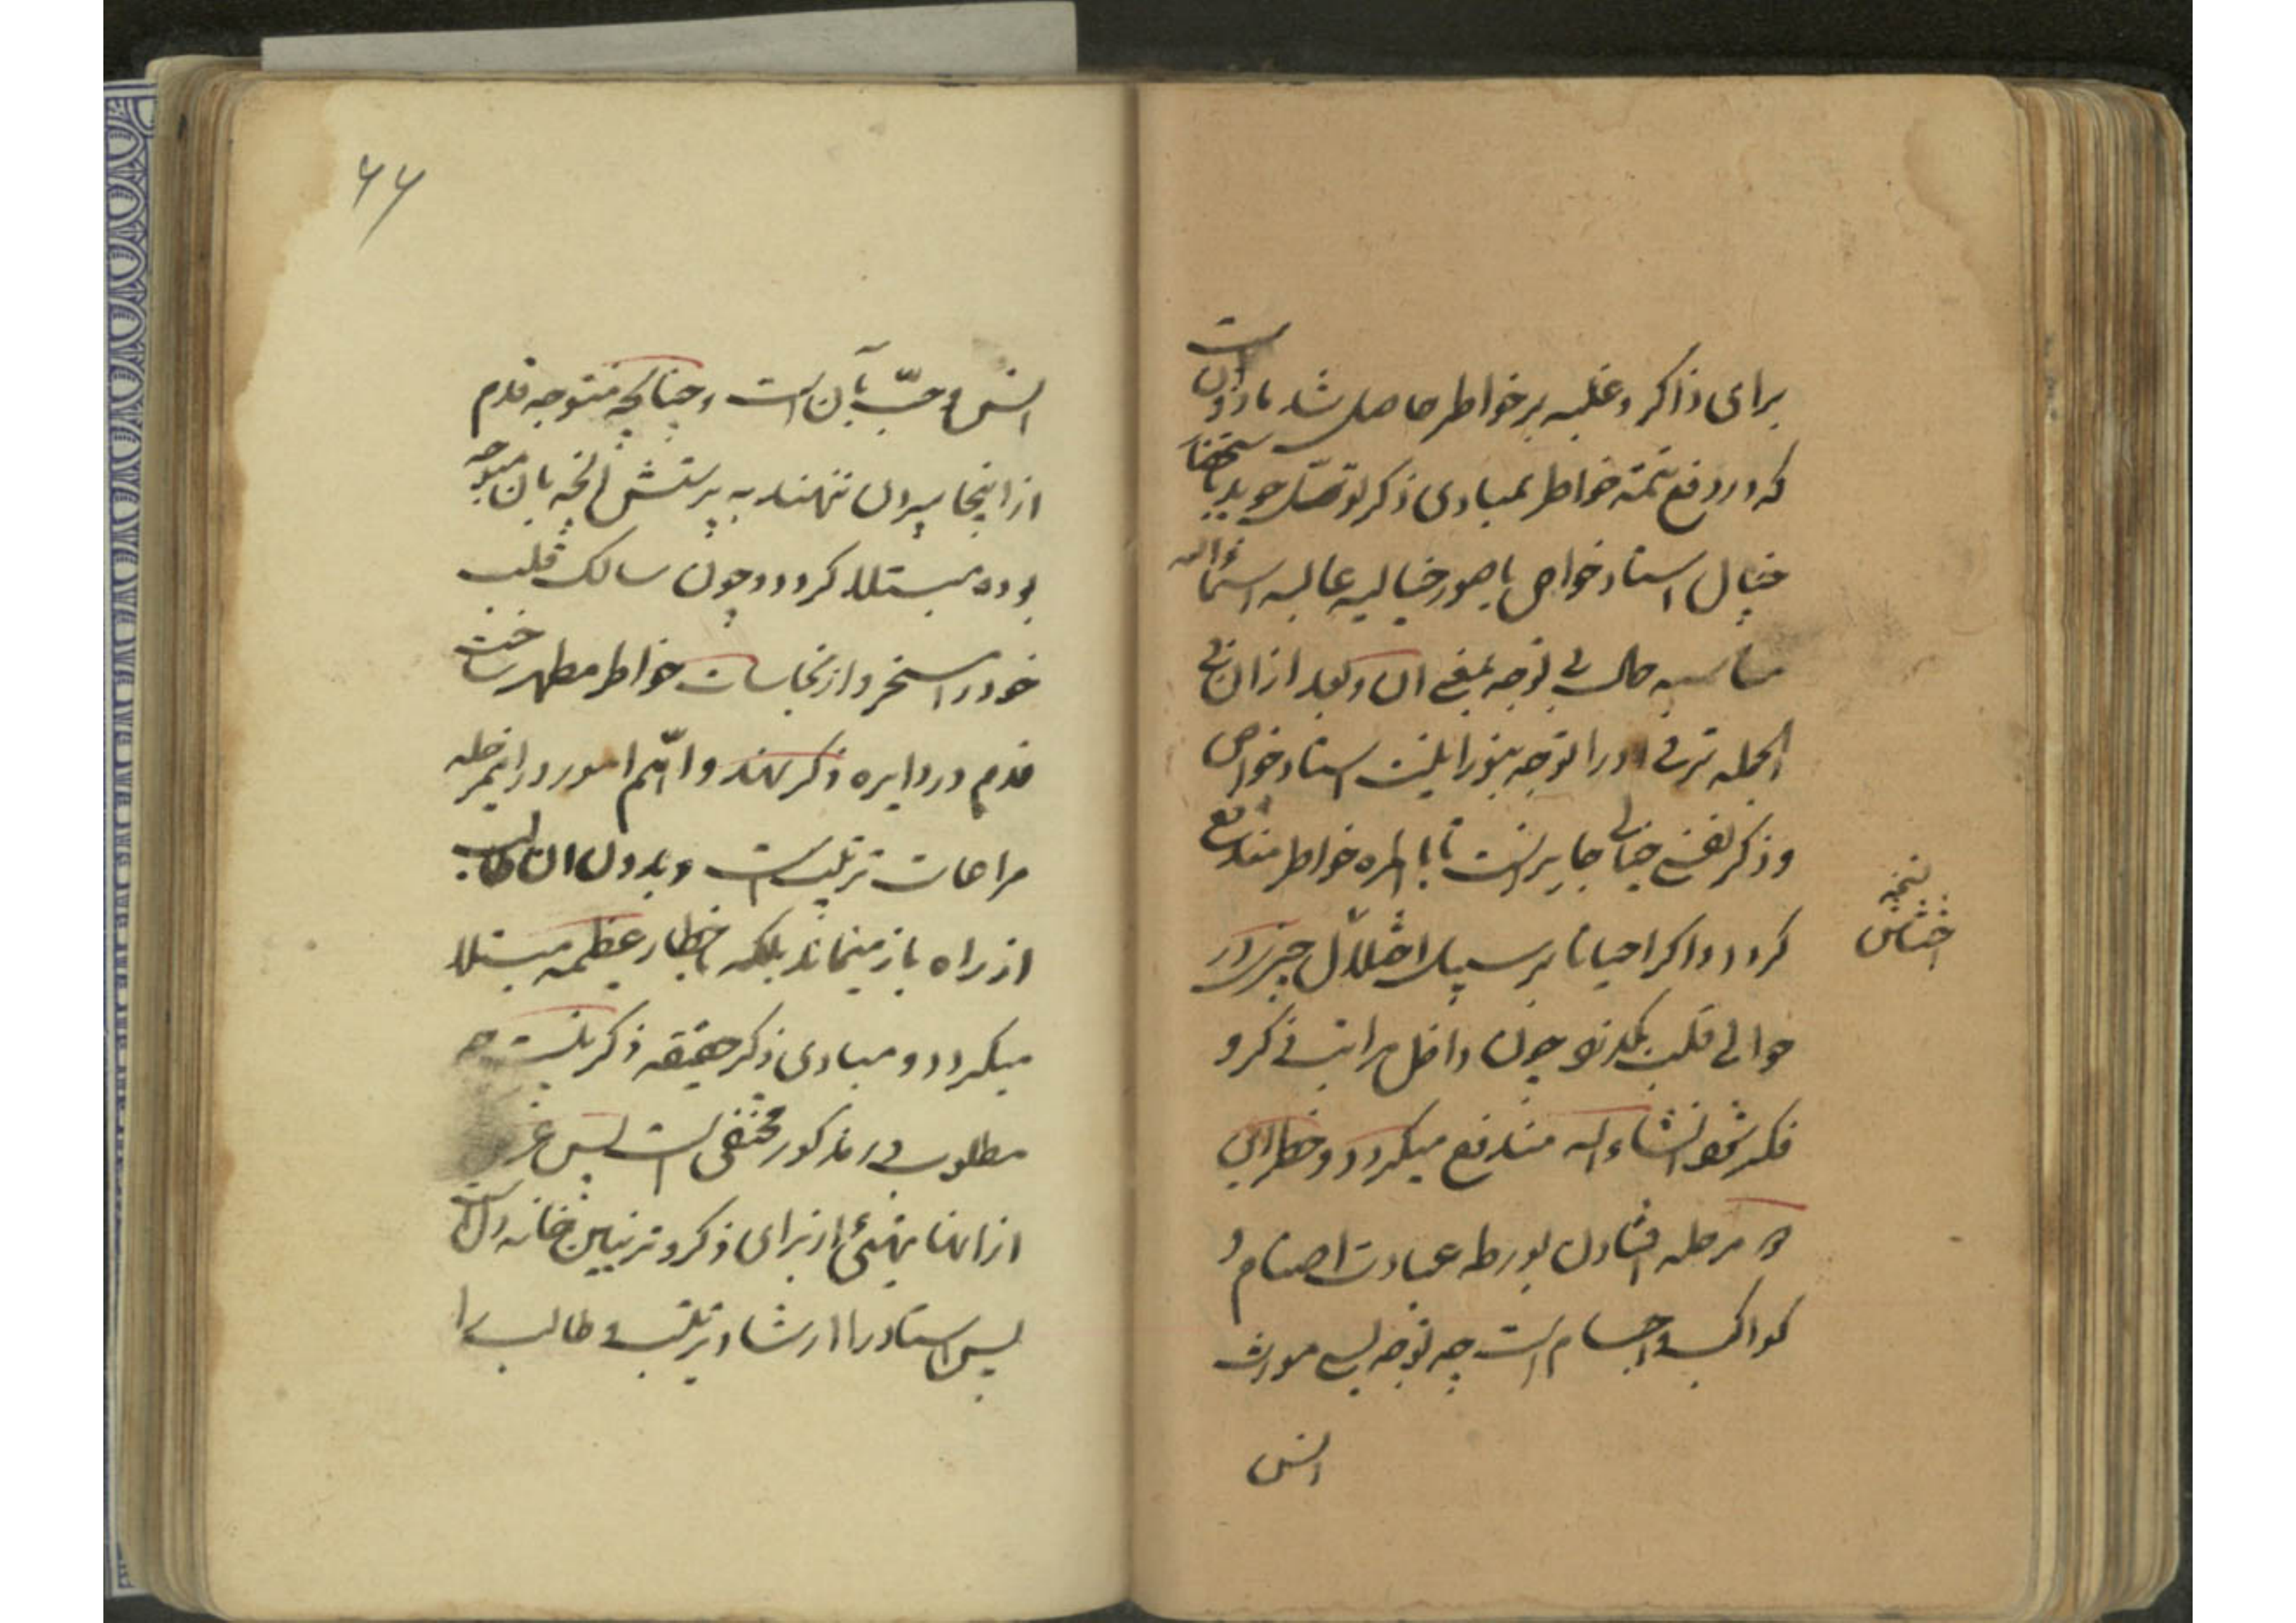 برای ذاکر و غلبه بر خواطر حاصل شد ماذون است
که در دفع تتمه خواطر بمبادی ذکر توسل جوید باستحضار
خیال استاد خواص یا صور خیالیه عالیه
مناسبه حال بی توجه بمعنی ان و بعد از ان فی
الجمله ترقی او را توجه بنورانیت استاد خواص
و ذکر نفسی خیالی جایز است تا بالمره خواطر مندفع
کردد و اکر احیانا بر سبیل اختلال چیزی در
نسخه
اختلاس
حوالی قلب بکذرد چون داخل مراتب ذکر و
فکر شود انشاء الله مندفع میکردد و خطر این
مرحله افتادن بورطه عبادت اصنام و
کواکب و اجسام است چه توجه بسی مورث
انس
۶۶
انس و حب بآن است و چنانچه متوجه قدم
از اینجا بیرون ننهند به پرستش آنچه بان متوجه
بوده مبتلا کردد و چون سالک قلب
خود را مسخر و از نجاسات خواطر مطهر ساخت
قدم در دایره ذکر نهند و اهم امور در اینمرحله
مراعات ترتیب است و بدون ان طالب
از راه باز میماند بلکه بخطار عظیمه مبتلا
میکردد و مبادی ذکر حقیقه ذکر نیست چه
مطلوب در مذکور مختفی است پس غرض
از انها تهیئی از برای ذکر و تزیین خانه دل است
پس استاد را ارشاد بترتیب و طالب را